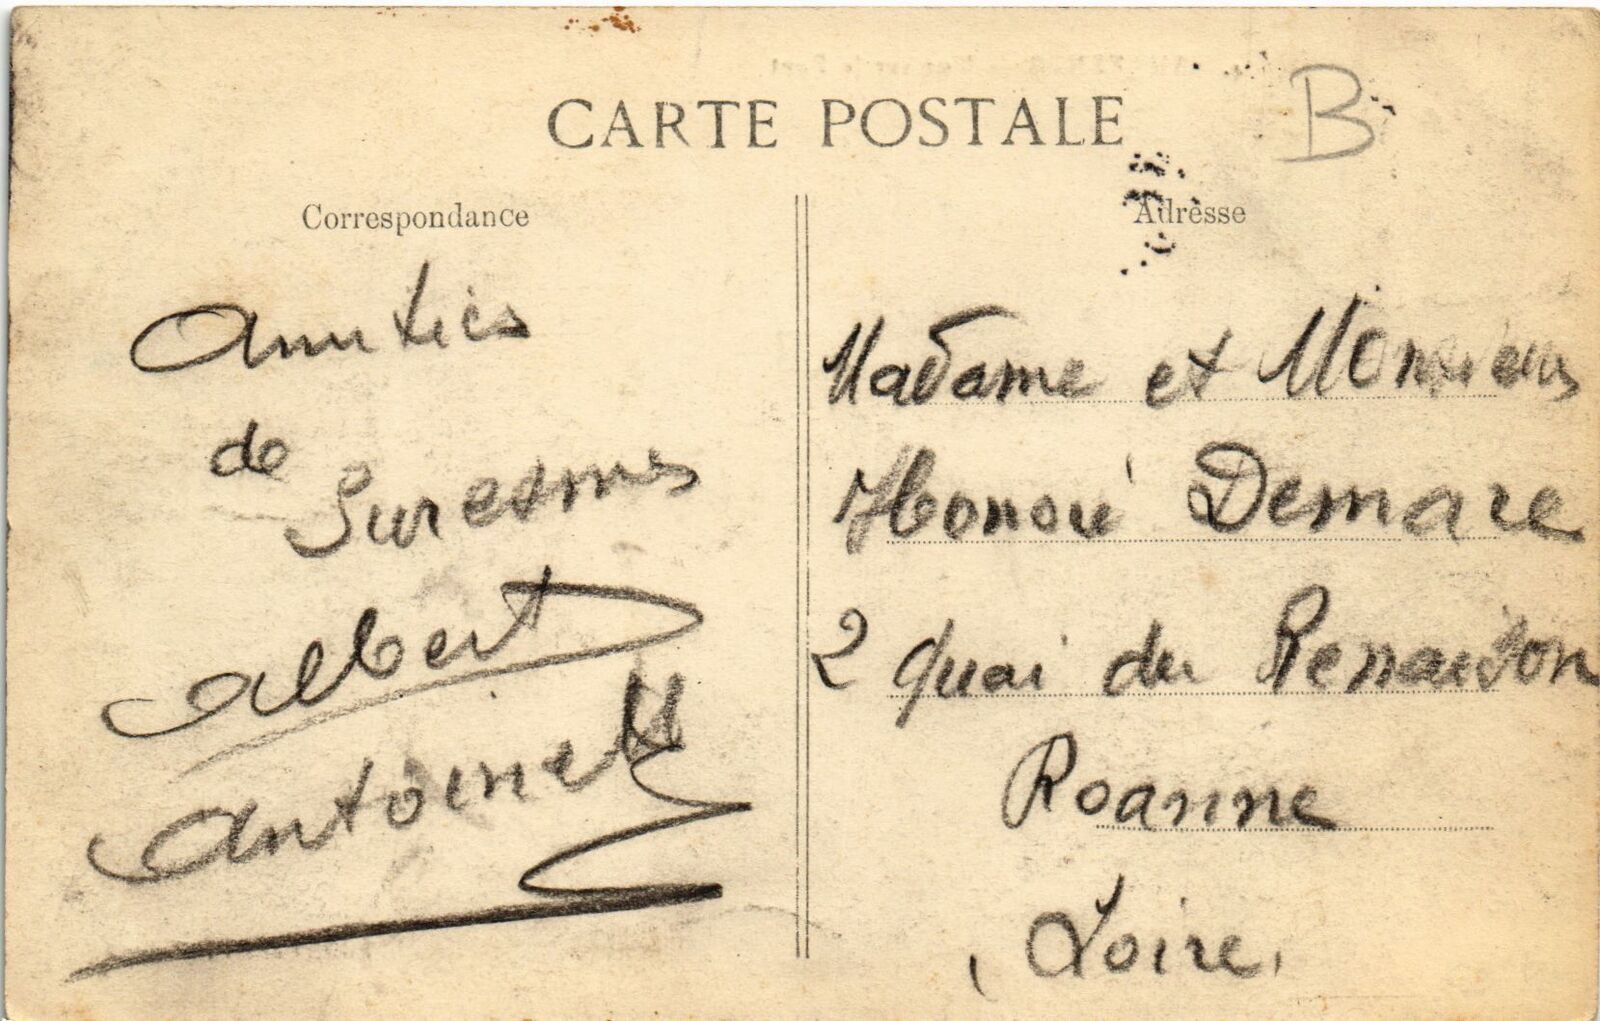 CARTE POSTALE
B
Correspondance
Amitiés
de
Suresnes
Albert
Antoinette
Adresse
Madame et Monsieur
Honoré Demare
2 quai du Renaison
Roanne
Loire